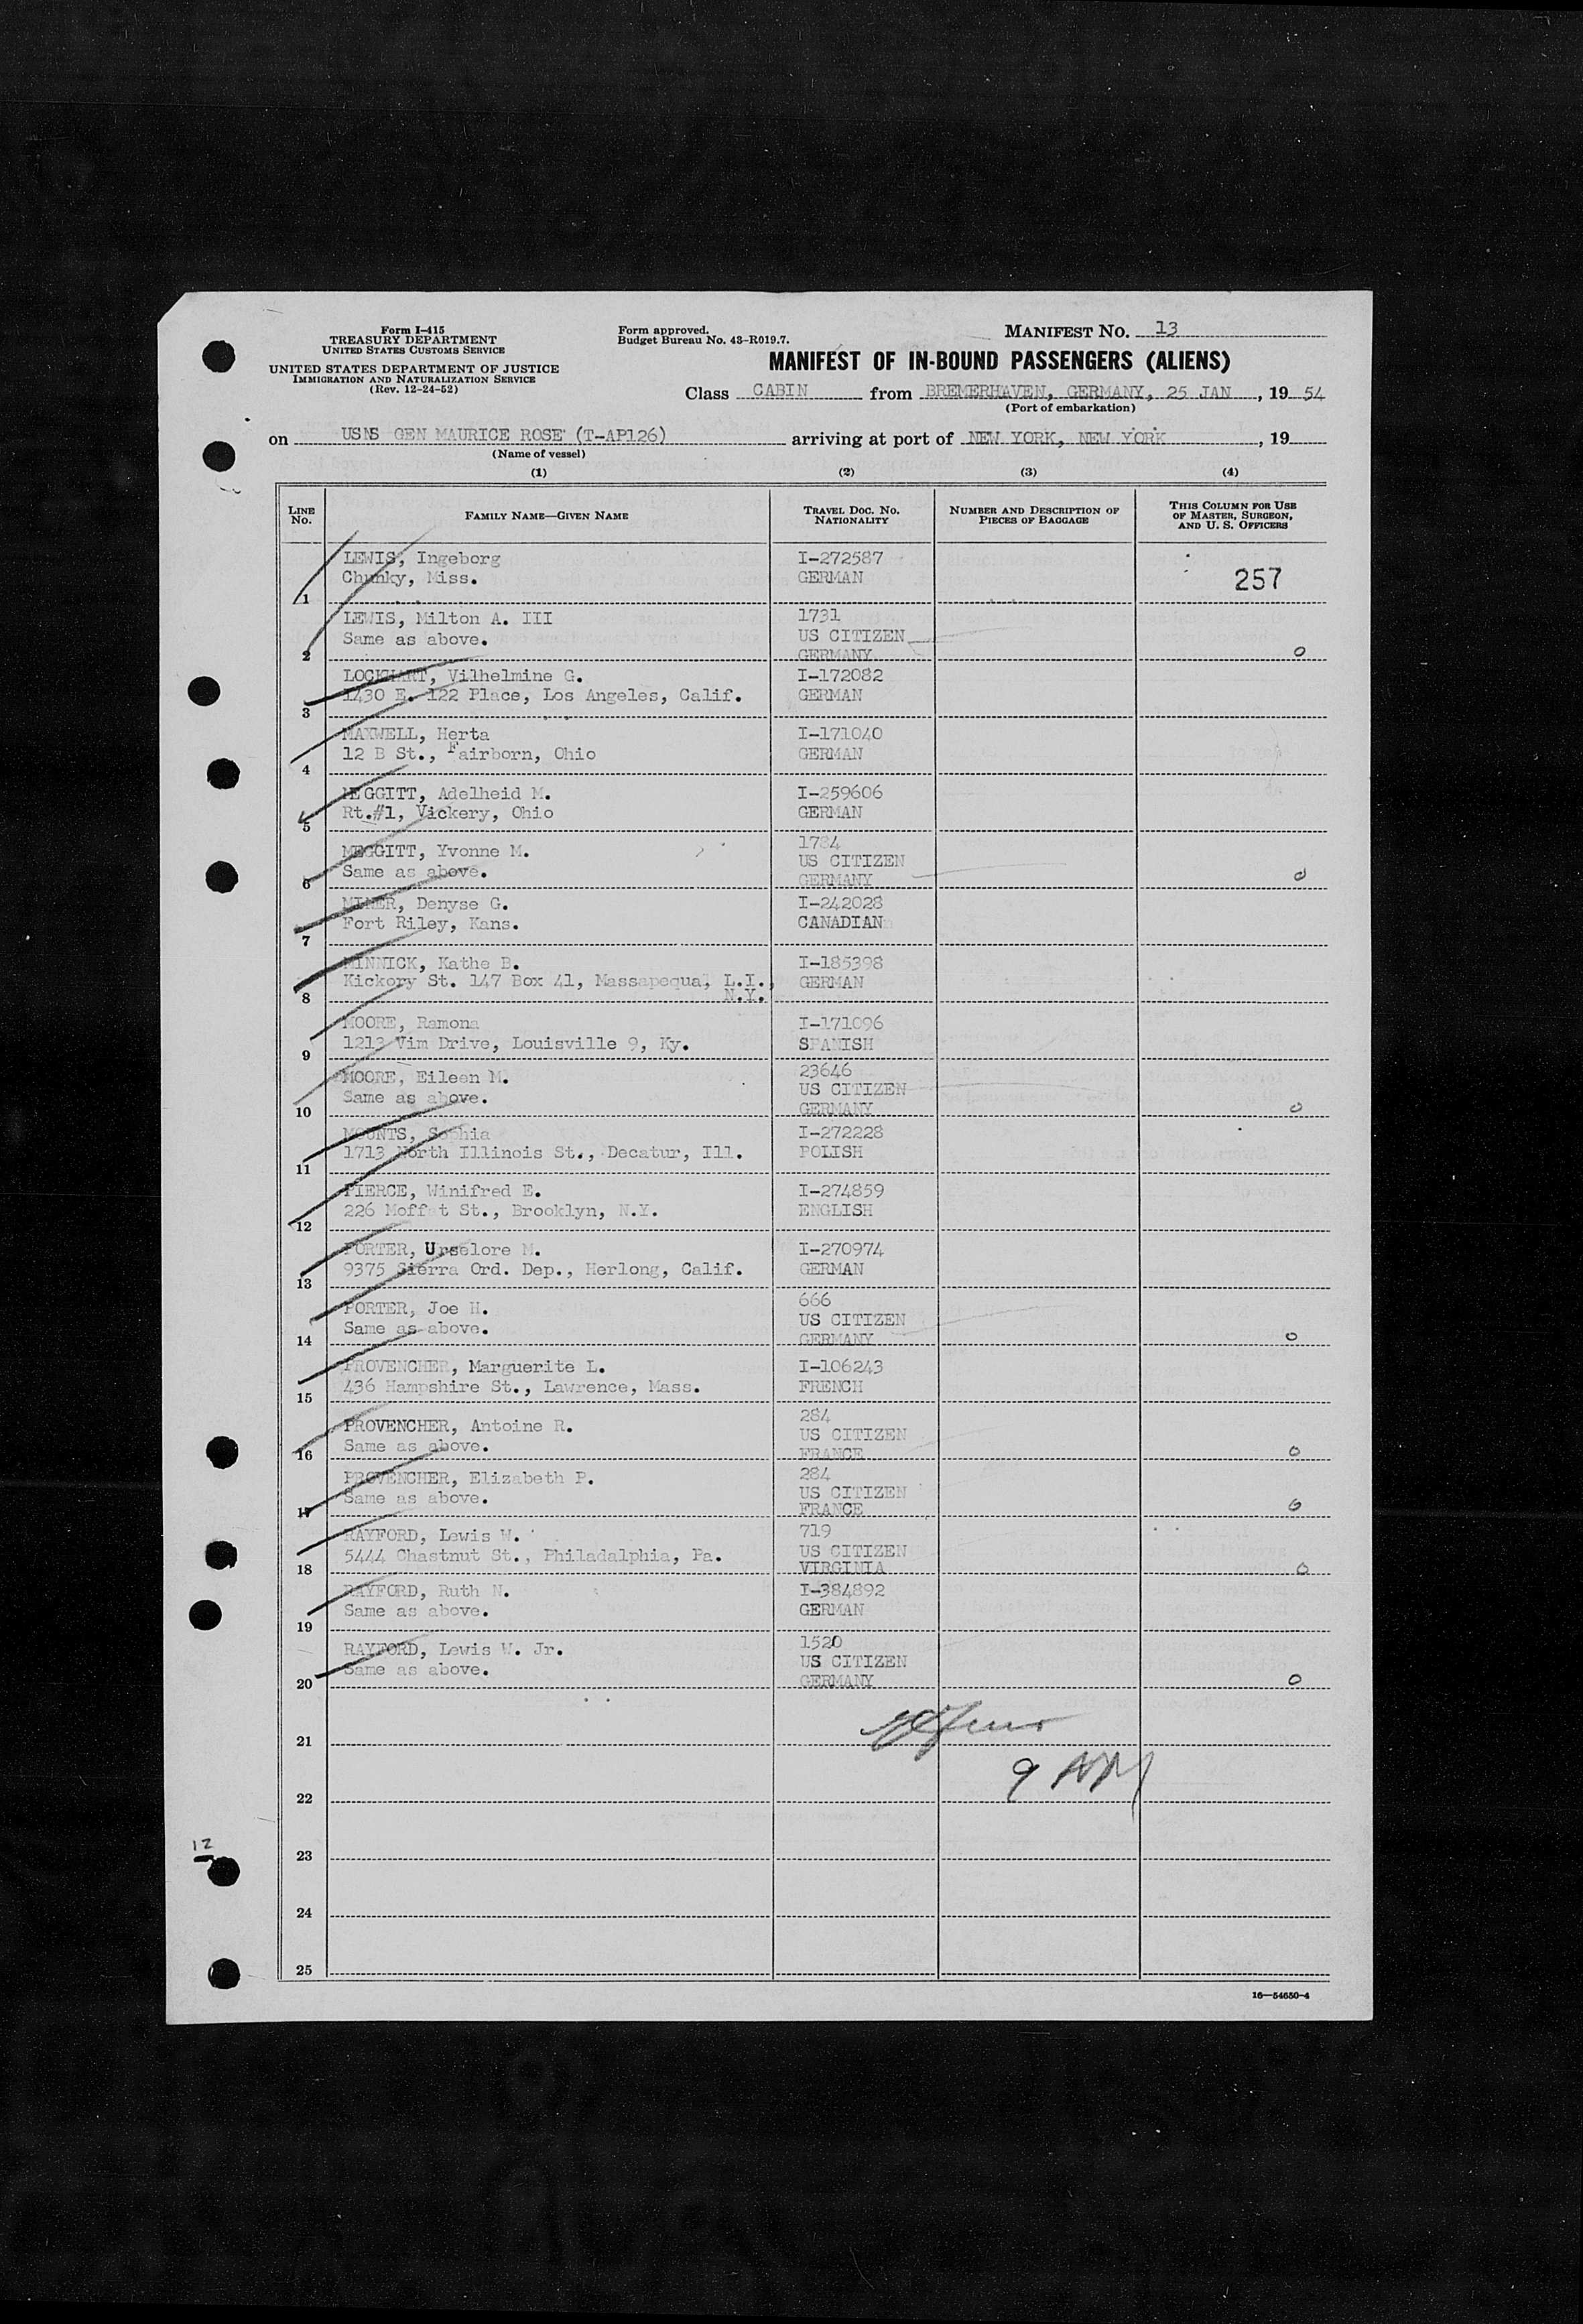 Form I-415
TREASURY DEPARTMENT
UNITED STATES CUSTOMS SERVICE
UNITED STATES DEPARTMENT OF JUSTICE
IMMIGRATION AND NATURALIZATION SERVICE
(Rev. 12-24-52)
Form approved.
Budget Bureau No. 43-R019.7.
MANIFEST NO. 13
MANIFEST OF IN-BOUND PASSENGERS (ALIENS)
Class CABIN from BREMERHAVEN, GERMANY, 25 JAN, 19 54
(Port of embarkation)
on USNS GEN MAURICE ROSE (T-AP126) arriving at port of NEW YORK, NEW YORK, 19
(Name of vessel)
(1) (2) (3) (4)
LINE NO. FAMILY NAME—GIVEN NAME TRAVEL DOC. NO. NATIONALITY NUMBER AND DESCRIPTION OF PIECES OF BAGGAGE THIS COLUMN FOR USE OF MASTER, SURGEON, AND U. S. OFFICERS
LEWIS, Ingeborg I-272587
Chunky, Miss. GERMAN 257
1
LEWIS, Milton A. III 1731
Same as above. US CITIZEN
2 GERMANY 0
LOCKHART, Vilhelmine G. I-172082
1430 E. 122 Place, Los Angeles, Calif. GERMAN
3
MAXWELL, Herta I-171040
12 B St., Fairborn, Ohio GERMAN
4
MEGGITT, Adelheid M. I-259606
Rt.#1, Vickery, Ohio GERMAN
5
MEGGITT, Yvonne M. 1784
Same as above. US CITIZEN
6 GERMANY 0
MINER, Denyse G. I-242028
Fort Riley, Kans. CANADIAN
7
MINNICK, Kathe B. I-185398
Kickory St. 147 Box 41, Massapequa, L.I., GERMAN
8 N.Y.
MOORE, Ramona I-171096
1213 Vim Drive, Louisville 9, Ky. SPANISH
9
MOORE, Eileen M. 23646
Same as above. US CITIZEN
10 GERMANY 0
MOUNTS, Sophia I-272228
1713 North Illinois St., Decatur, Ill. POLISH
11
PIERCE, Winifred E. I-274859
226 Moffat St., Brooklyn, N.Y. ENGLISH
12
PORTER, Urselore M. I-270974
9375 Sierra Ord. Dep., Herlong, Calif. GERMAN
13
PORTER, Joe H. 666
Same as above. US CITIZEN
14 GERMANY 0
PROVENCHER, Marguerite L. I-106243
436 Hampshire St., Lawrence, Mass. FRENCH
15
PROVENCHER, Antoine R. 284
Same as above. US CITIZEN
16 FRANCE 0
PROVENCHER, Elizabeth P. 284
Same as above. US CITIZEN
17 FRANCE 0
RAYFORD, Lewis W. 719
5444 Chastnut St., Philadalphia, Pa. US CITIZEN
18 VIRGINIA 0
RAYFORD, Ruth N. I-384892
Same as above. GERMAN
19
RAYFORD, Lewis W. Jr. 1520
Same as above. US CITIZEN
20 GERMANY 0
21
9 AM
22
12
23
24
25
16—54650-4